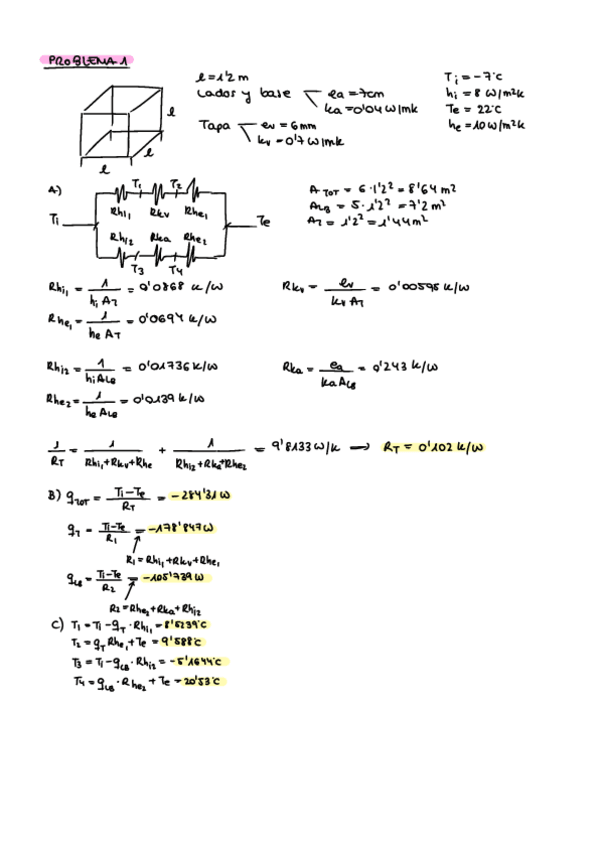 PROBLEMA 1
l = 1'2 m
Lados y base ea = 7cm
ka = 0'04 W/mk
Tapa ev = 6mm
kv = 0'7 W/mk
Ti = -7ºC
hi = 8 W/m²k
Te = 22ºC
he = 10 W/m²k
l
l
l
A)
T1 T2
Rhi1 Rkv Rhe1
Ti Te
Rhi2 Rka Rhe2
T3 T4
A TOT = 6·1'2² = 8'64 m²
ALB = 5·1'2² = 7'2 m²
AT = 1'2² = 1'44 m²
Rhi1 = 1 / hi AT = 0'0868 k/W
Rkv = ev / kv AT = 0'00595 k/W
Rhe1 = 1 / he AT = 0'0694 k/W
Rhi2 = 1 / hi ALB = 0'01736 k/W
Rka = ea / ka ALB = 0'243 k/W
Rhe2 = 1 / he ALB = 0'0139 k/W
1 / RT = 1 / Rhi1 + Rkv + Rhe + 1 / Rhi2 + Rka + Rhe2 = 9'8133 W/k → RT = 0'102 k/W
B) qTOT = Ti - Te / RT = -284'31 W
qT = Ti - Te / R1 = -178'847 W
R1 = Rhi1 + Rkv + Rhe1
qLB = Ti - Te / R2 = -105'739 W
R2 = Rhe2 + Rka + Rhi2
C) T1 = Ti - qT · Rhi1 = 8'5239ºC
T2 = qT Rhe1 + Te = 9'588ºC
T3 = Ti - qLB · Rhi2 = -5'1644ºC
T4 = qLB · Rhe2 + Te = 20'53ºC